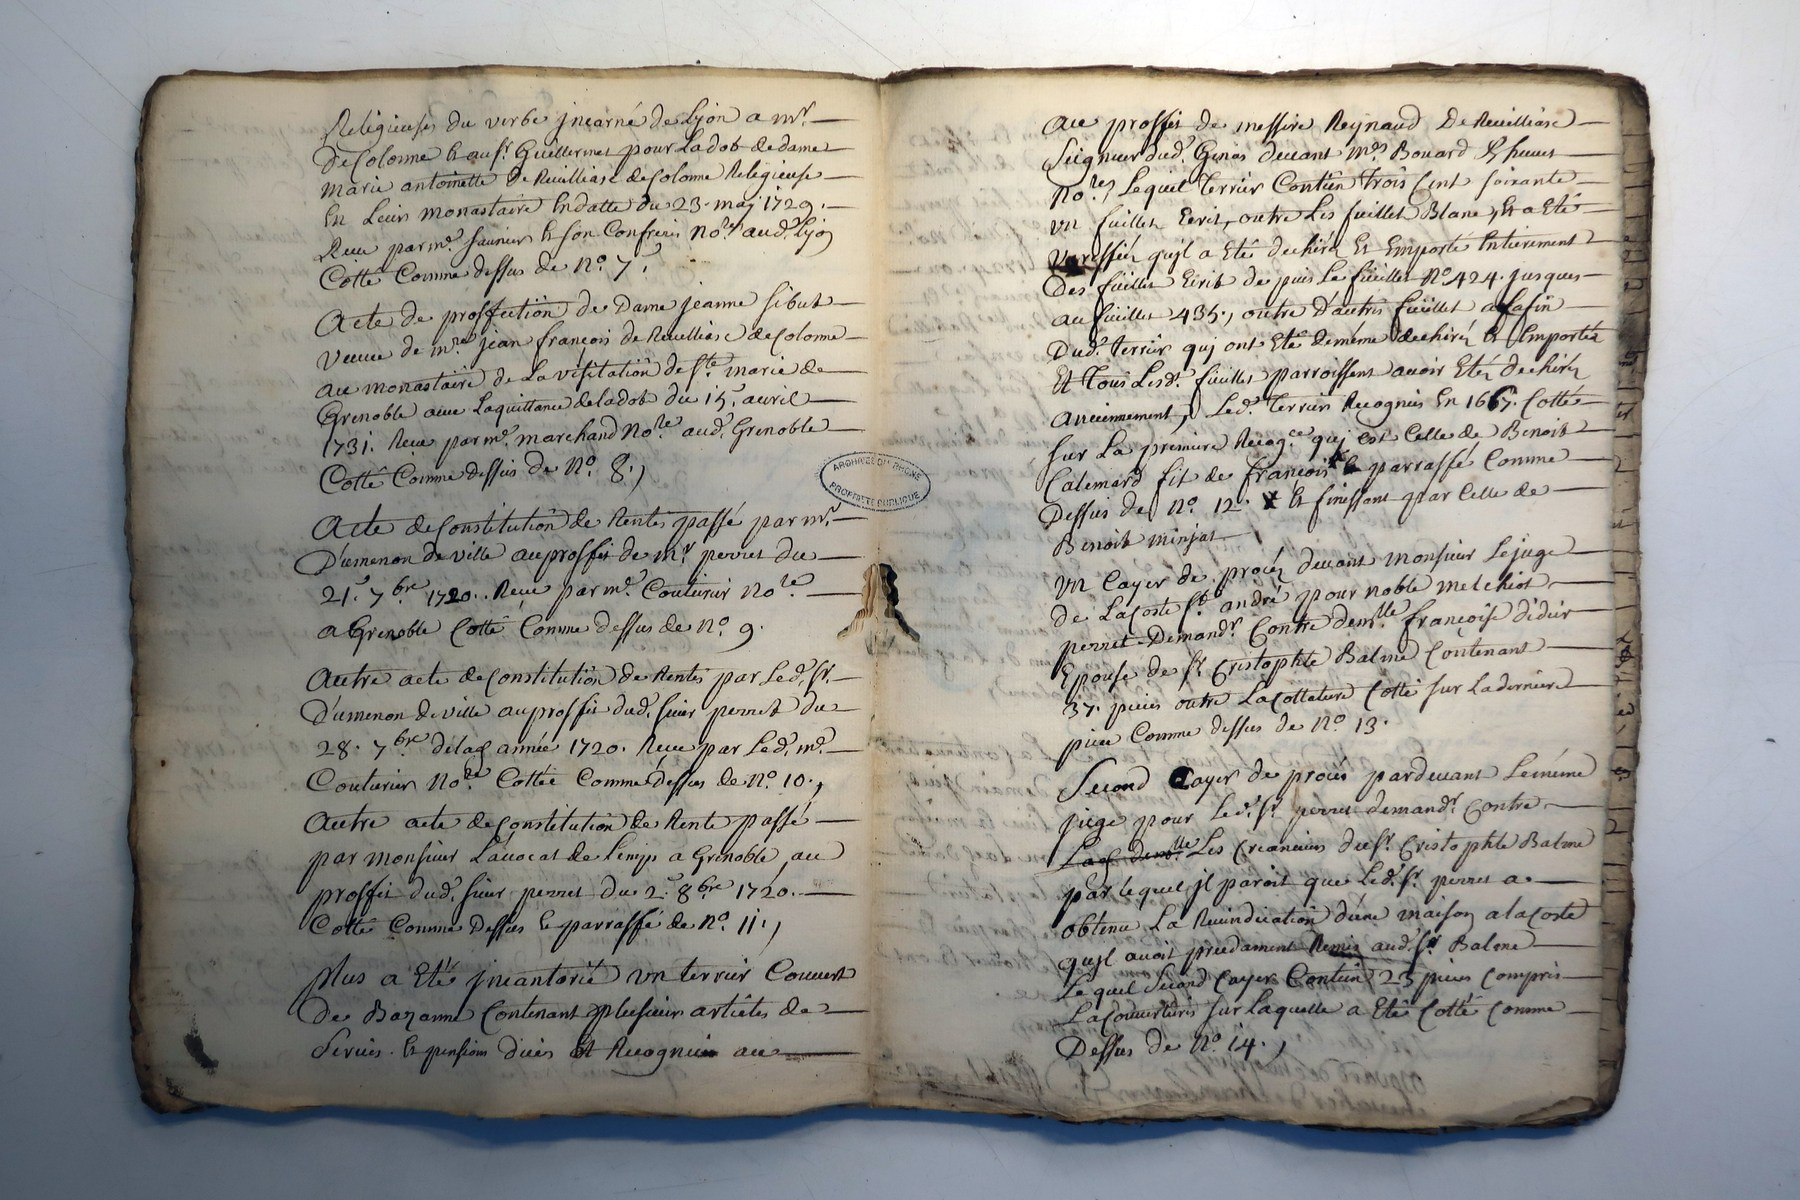 Religieuses du verbe jncarné de Lyon a mr.
De Colonne & au sr. Guillermet pour La dob de dame
marie antoinette De Reuilliasc de Colonne Religieuse
En Leur monastaire En datte du 23. maj 1729.
Receu par me. saunier & son Confrere Nore. aud. Lyon
Cotté Comme dessus de No. 7.
Acte de proffection de Dame jeanne sibut
veuue de mre. jean françois de Reuilliasc de Colonne
au monastaire de La visitation de Ste. marie de
Grenoble auec La quittance de la dob du 15. auril
1731. Receu par me. marchand Nore. aud. Grenoble
Cotté Comme dessus de No. 8.,
Acte de Constitution de Rentes passé par mr.
Dumenon de ville au proffit de mr. perret du
21. 7bre. 1720. Receu par me. Couturier Nore.
a Grenoble Cotté Comme dessus de No. 9.
Autre acte de Constitution de Rentes par Led. sr.
Dumenon de ville au proffit dud. sieur perret du
28. 7bre de lad. année 1720. Receu par Led. me.
Couturier Nore. Cottée Comme dessus de No. 10.,
Autre acte de Constitution de Rente passé
par monsieur L'auocat de a Grenoble, au
proffit dud. sieur perret du 2. 8bre 1720.
Cotté Comme Dessus & parraffé de No. 11.,
Plus a Eté jnuantorié vn terrier Couuert
De Bazanne Contenant plusieurs articles de
Seruis. & pensions diues Et Recognues au
ARCHIVES DU RHONE
PROPRIÉTÉ PUBLIQUE
Au proffit de messire Reynaud De Reuilliasc
Seigneur dud. Genas deuant mes Bouard &
Nores, Lequel Terrier Contien trois Cent soixante
vn fuillet Ecrit, outre Les fuillet Blanc, Et a Eté
veressiéz quil a Eté dechiréz Et Emporté Entierement
Des fuillet Ecrit de puis Le fuillet No. 424. jusques
au fuillet 435., outre d'autres fuillet a la fin
Dud. Terrier quj ont Eté de méme dechiréz Et Emportéz
Et Tous Lesd. fuillet parroissent auoir Etéz dechiréz
anciennement, Led. Terrier Recognus En 1667. Cotté
sur La premiere Recogce. quj est Celle de Benoit
Calemard fit de françois & parraffé Comme
Dessus de No. 12. & finissant par Celle de
Benoit minjat
Vn Cayer de procéz deuant monsieur Le juge
de La Coste St. andré pour noble melchior
perret Demandr. Contre demelle françoise didier
Epouse de sr. Cristophle Balme Contenant
37. pieces outre La Cottature Cotté sur La derniere
piece Comme dessus de No. 13.
Second Cayer de procés par deuant Le méme
juge pour Led. sr. perret demandr. Contre
Lad. demelle Les Creanciers du sr. Cristophle Balme
par lequel jl paroit que Led. sr. perret a
obtenu La Reuindication d'une maison a la Coste
quil auoit precedament Remis aud. sr. Balme
Le quel Second Cayer Contien 23 pieces Compris
La Couuerture sur Laquelle a Eté Cotté Comme
Dessus de No. 14.,